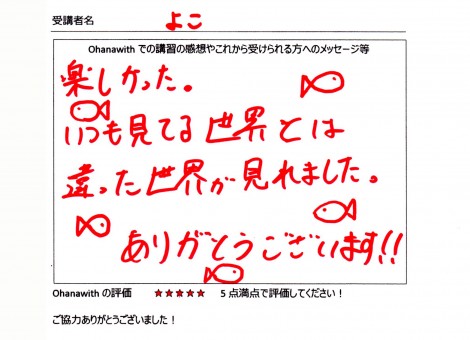 受講者名 よこ
Ohanawith での講習の感想やこれから受けられる方へのメッセージ等
楽しかった。
いつも見てる世界とは
違った世界が見れました。
ありがとうございます!!
Ohanawith の評価 ★★★★★ 5 点満点で評価してください！
ご協力ありがとうございました！